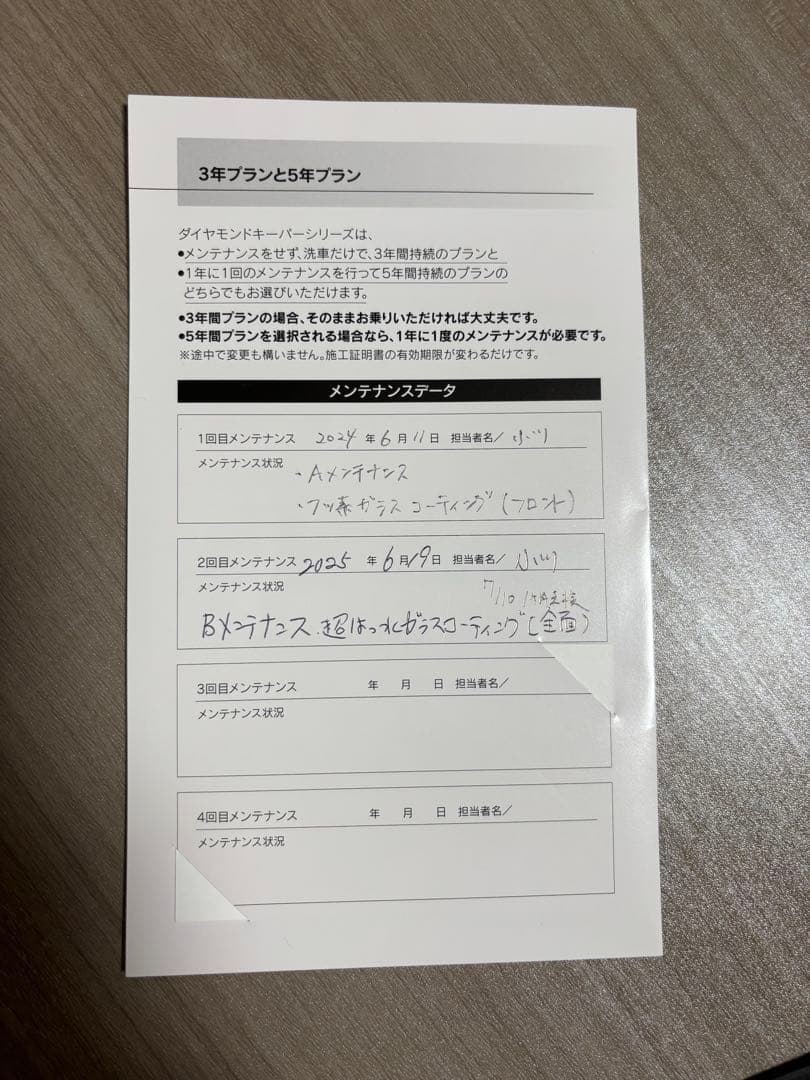 3年プランと5年プラン
ダイヤモンドキーパーシリーズは、
●メンテナンスをせず、洗車だけで、3年間持続のプランと
●1年に1回のメンテナンスを行って5年間持続のプランの
どちらでもお選びいただけます。
●3年間プランの場合、そのままお乗りいただければ大丈夫です。
●5年間プランを選択される場合なら、1年に1度のメンテナンスが必要です。
※途中で変更も構いません。施工証明書の有効期限が変わるだけです。
メンテナンスデータ
1回目メンテナンス 2024年6月11日 担当者名/小川
メンテナンス状況
・Aメンテナンス
・フッ素ガラスコーティング(フロント)
2回目メンテナンス 2025年6月19日 担当者名/小川
メンテナンス状況
7/10 1ヶ月点検
Bメンテナンス.超はっ水ガラスコーティング(全面)
3回目メンテナンス 年 月 日 担当者名/
メンテナンス状況
4回目メンテナンス 年 月 日 担当者名/
メンテナンス状況